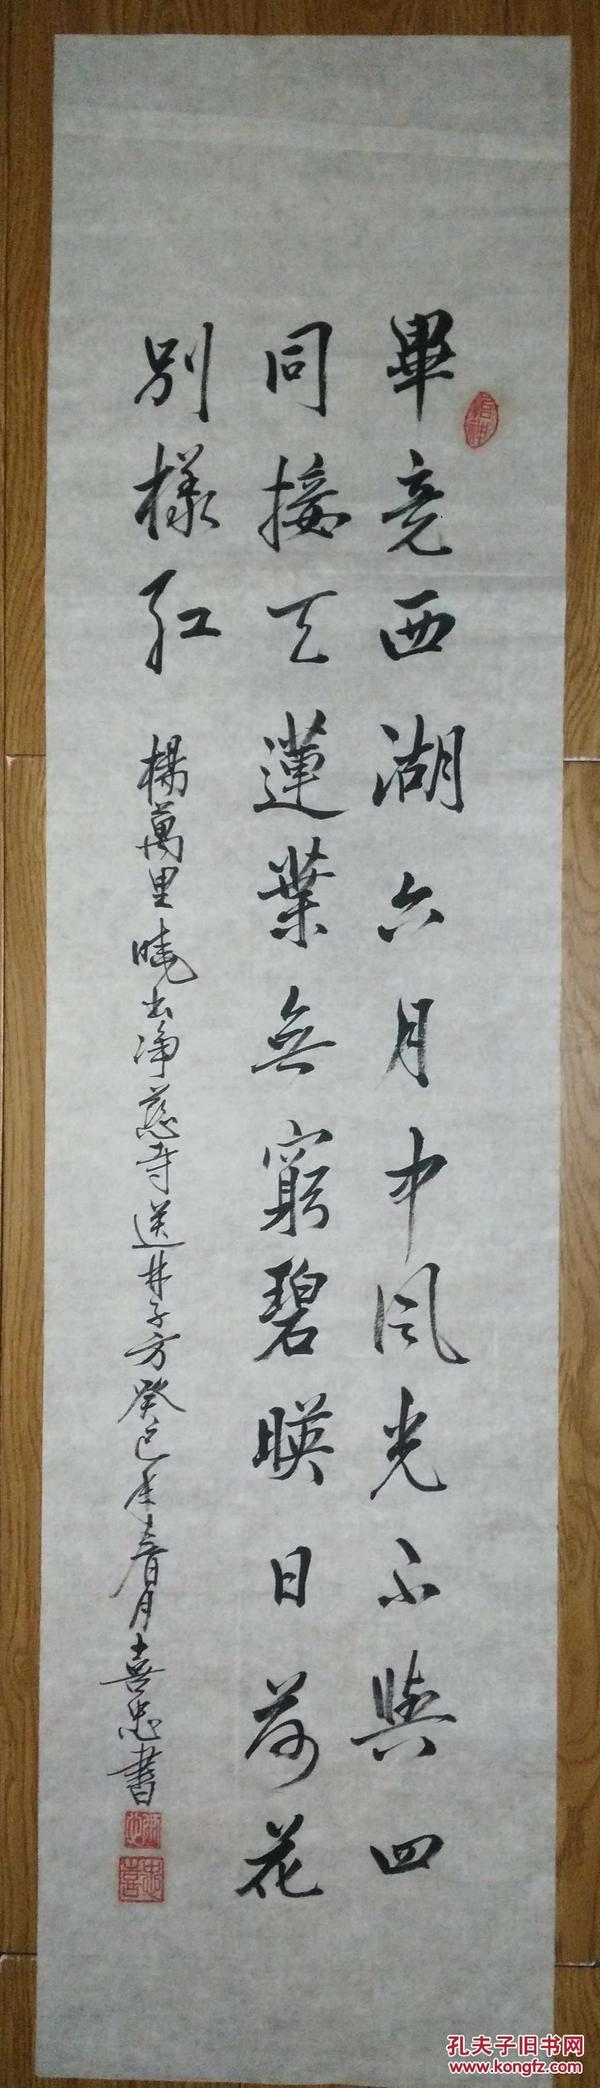 畢竟西湖六月中風光不與四
同接天蓮葉無窮碧暎日荷花
別樣紅
楊萬里曉出淨慈寺送林子方癸巳年春月喜忠書
孔夫子旧书网
www.kongfz.com